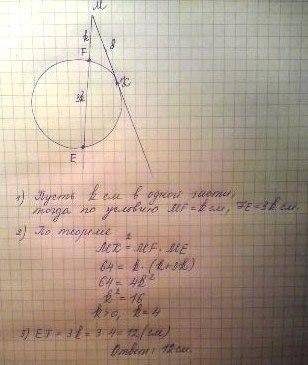 M
k
8
F
K
3k
E
1) Пусть k см в одной части,
тогда по условию MF = k см, FE = 3k см.
2) По теореме
MK² = MF · ME
64 = k · (k+3k)
64 = 4k²
k² = 16
k>0, k = 4
3) EF = 3k = 3·4 = 12 (см)
Ответ: 12 см.